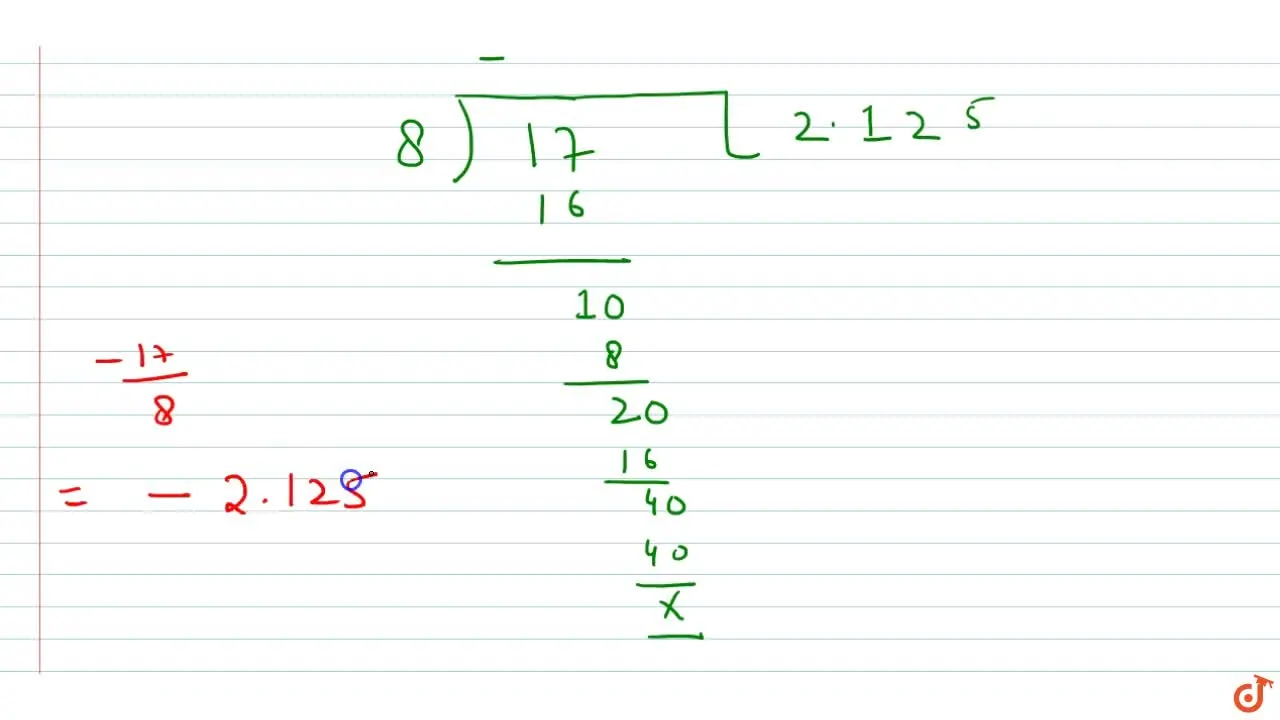 8 ) 17 2.125
16
10
8
20
16
40
40
x
-17
8
= - 2.125